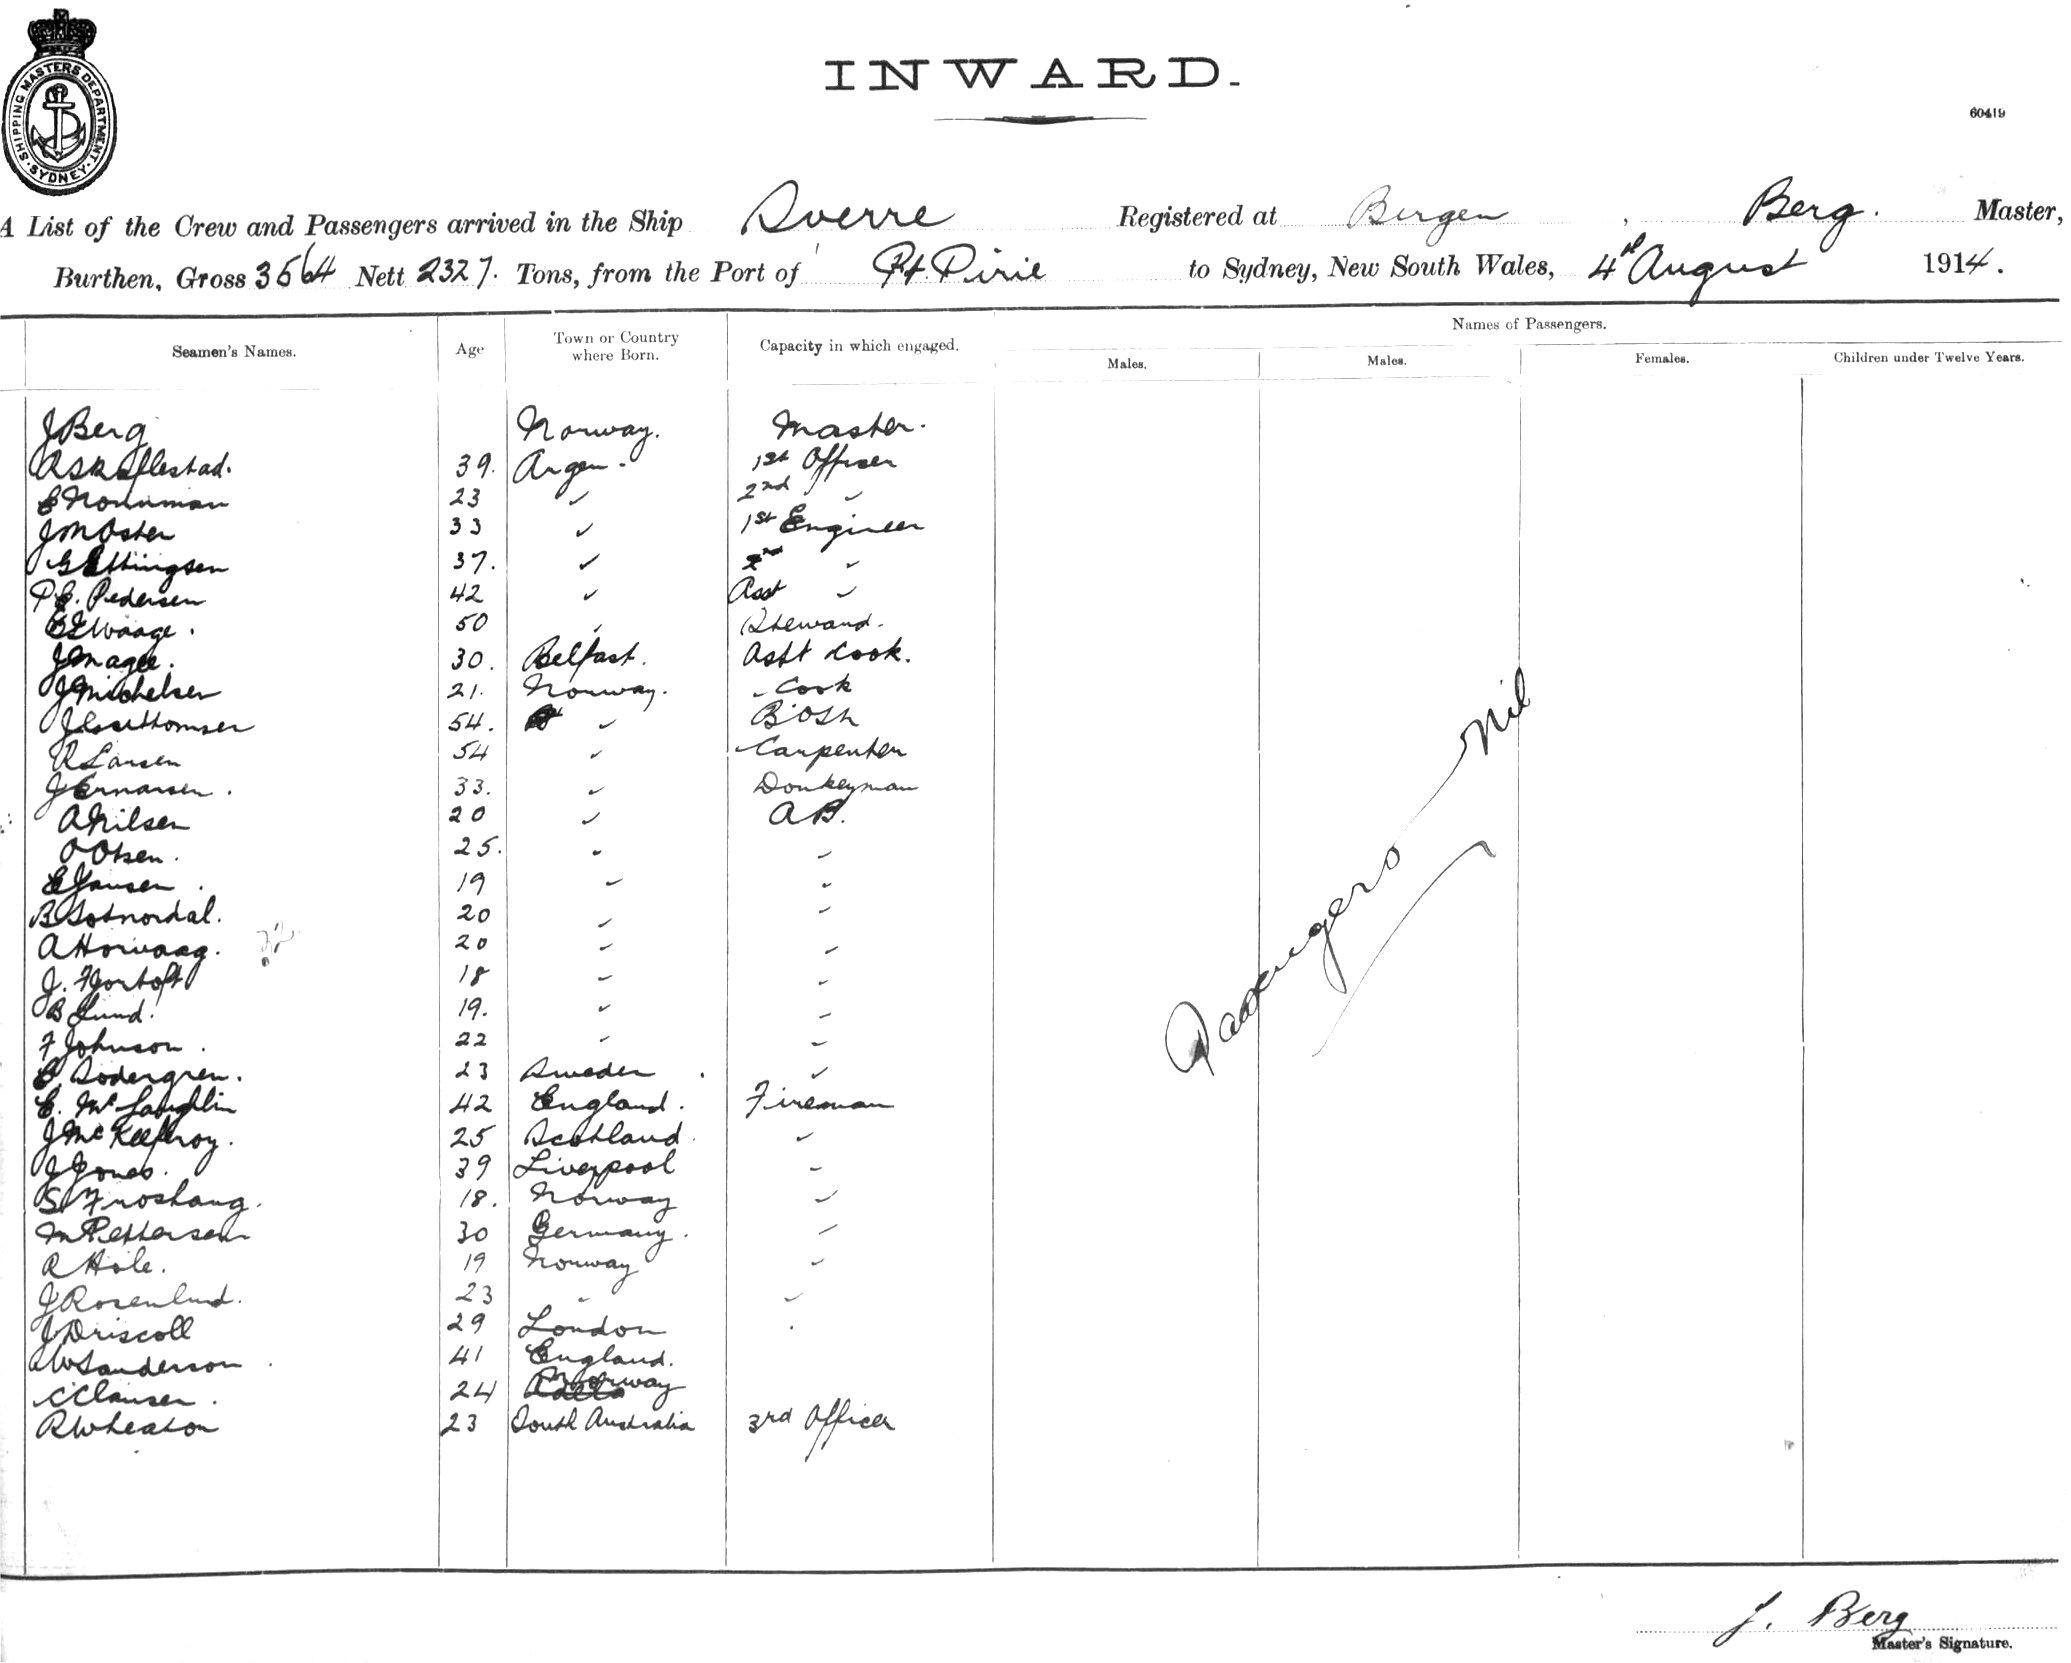 SHIPPING MASTERS DEPARTMENT · SYDNEY ·
INWARD.
60419
A List of the Crew and Passengers arrived in the Ship Sverre Registered at Bergen, Berg. Master,
Burthen, Gross 3564 Nett 2327. Tons, from the Port of Pt. Pirie to Sydney, New South Wales, 4th August 1914.
Names of Passengers.
Seamen's Names. Age Town or Country where Born. Capacity in which engaged. Males. Males. Females. Children under Twelve Years.
J Berg Norway. Master.
39. 1st Officer
23 " 2nd "
33 " 1st Engineer
G Ettingsen 37. " 2nd "
P E. Pedersen 42 " Asst "
Waage. 50 " Steward.
J Magee. 30. Belfast. Asst Cook.
J Michelsen 21. Norway. Cook
54. " BOSn
R Larsen 54 " Carpenter
33. " Donkeyman
A Nilsen 20 " A B.
O Olsen. 25. " "
E Jansen. 19 " "
B 20 " "
A Horvaag. 20 " "
J. Fjortoft 18 " "
B Lund. 19. " "
F Johnson. 22 " "
E Sodergren. 23 Sweden. "
E. McLaughlin 42 England. Fireman
J 25 Scotland. "
J Jones. 39 Liverpool "
S Froshaug. 18. Norway "
M Pettersen 30 Germany. "
R Hole. 19 Norway "
J Rosenlund. 23 " "
J Driscoll 29 London "
W Sanderson 41 England.
C Clausen. 24 Norway
R Wheaton 23 South Australia 3rd Officer
Passengers Nil
J. Berg
Master's Signature.